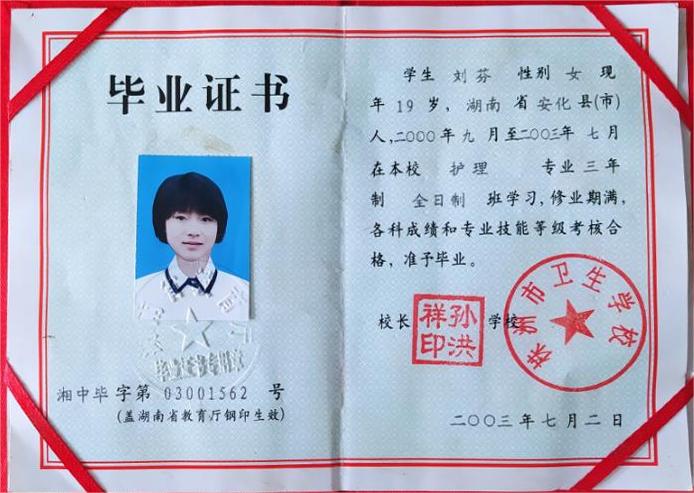 毕业证书
湘中毕字第 03001562 号
(盖湖南省教育厅钢印生效)
学生 刘芬 性别 女 现
年 19 岁, 湖南 省 安化 县(市)
人,二〇〇〇年 九 月至二〇〇三年 七 月
在本校 护理 专业 三 年
制 全日制 班学习,修业期满,
各科成绩和专业技能等级考核合
格,准予毕业。
校长 孙洪祥印 学校
株洲市卫生学校
二〇〇三 年 七 月 二 日